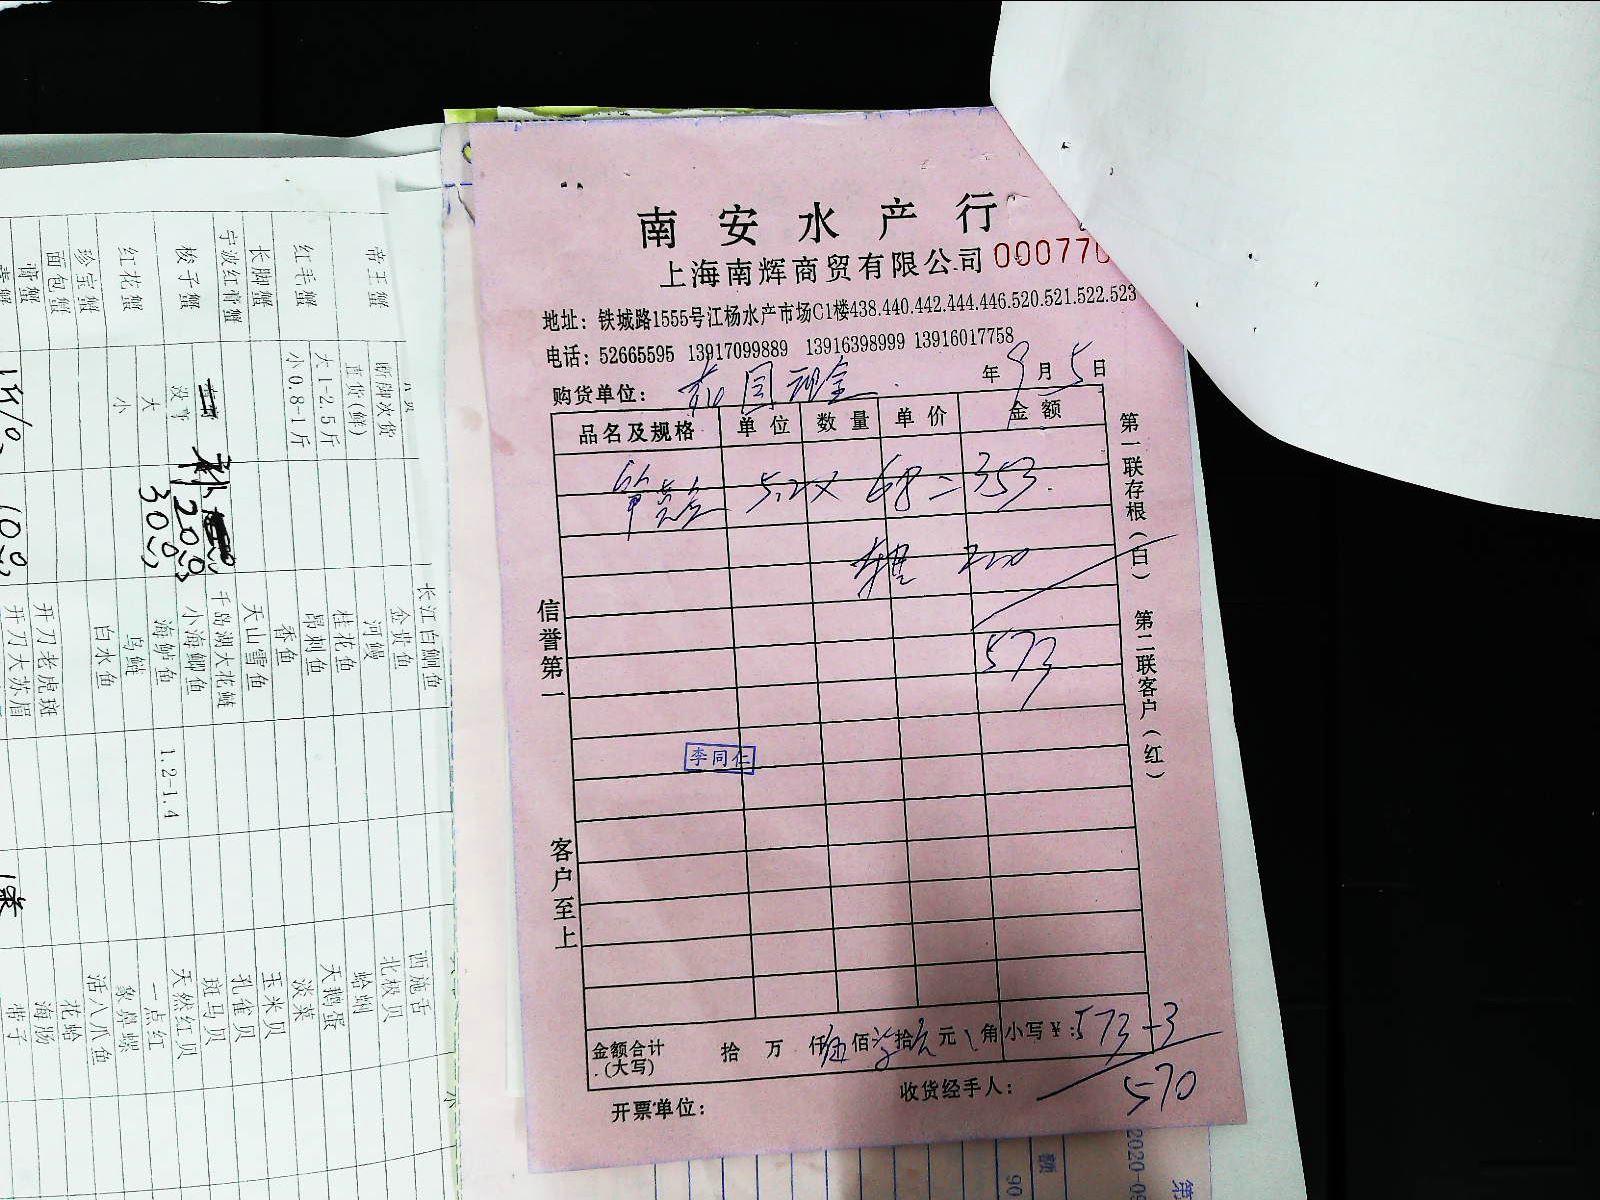 南安水产行
上海南辉商贸有限公司 000770
地址：铁城路1555号江杨水产市场C1楼438.440.442.444.446.520.521.522.523
电话：52665595 13917099889 13916398999 13916017758
购货单位： 年9月5日
品名及规格 单位 数量 单价 金额
5.2× 68=353.
220
573
李同仁
金额合计 拾 万 仟伍佰柒拾元角小写￥：573-3
（大写）
570
收货经手人：
开票单位：
信誉第一
客户至上
第一联存根（白） 第二联客户（红）
帝王蟹
断脚次货
直货(鲜)
红毛蟹
大1-2.5斤
小0.8-1斤
长脚蟹
宁波红膏蟹
梭子蟹
没事
红花蟹
大
小
珍宝蟹
面包蟹
膏蟹
补
200
300
100
长江白鮰鱼
金贵鱼
河鳗
桂花鱼
昂刺鱼
香鱼
天山雪鱼
千岛湖大花鲢
小海鲫鱼
海鲈鱼 1.2-1.4
乌鲢
白水鱼
开刀老虎斑
开刀大苏眉
西施舌
北极贝
蛤蜊
天鹅蛋
淡菜
玉米贝
孔雀贝
斑马贝
天然红贝
一点红
象鼻螺
活八爪鱼
花蛤
海肠
带子
额
90
2020-09
第